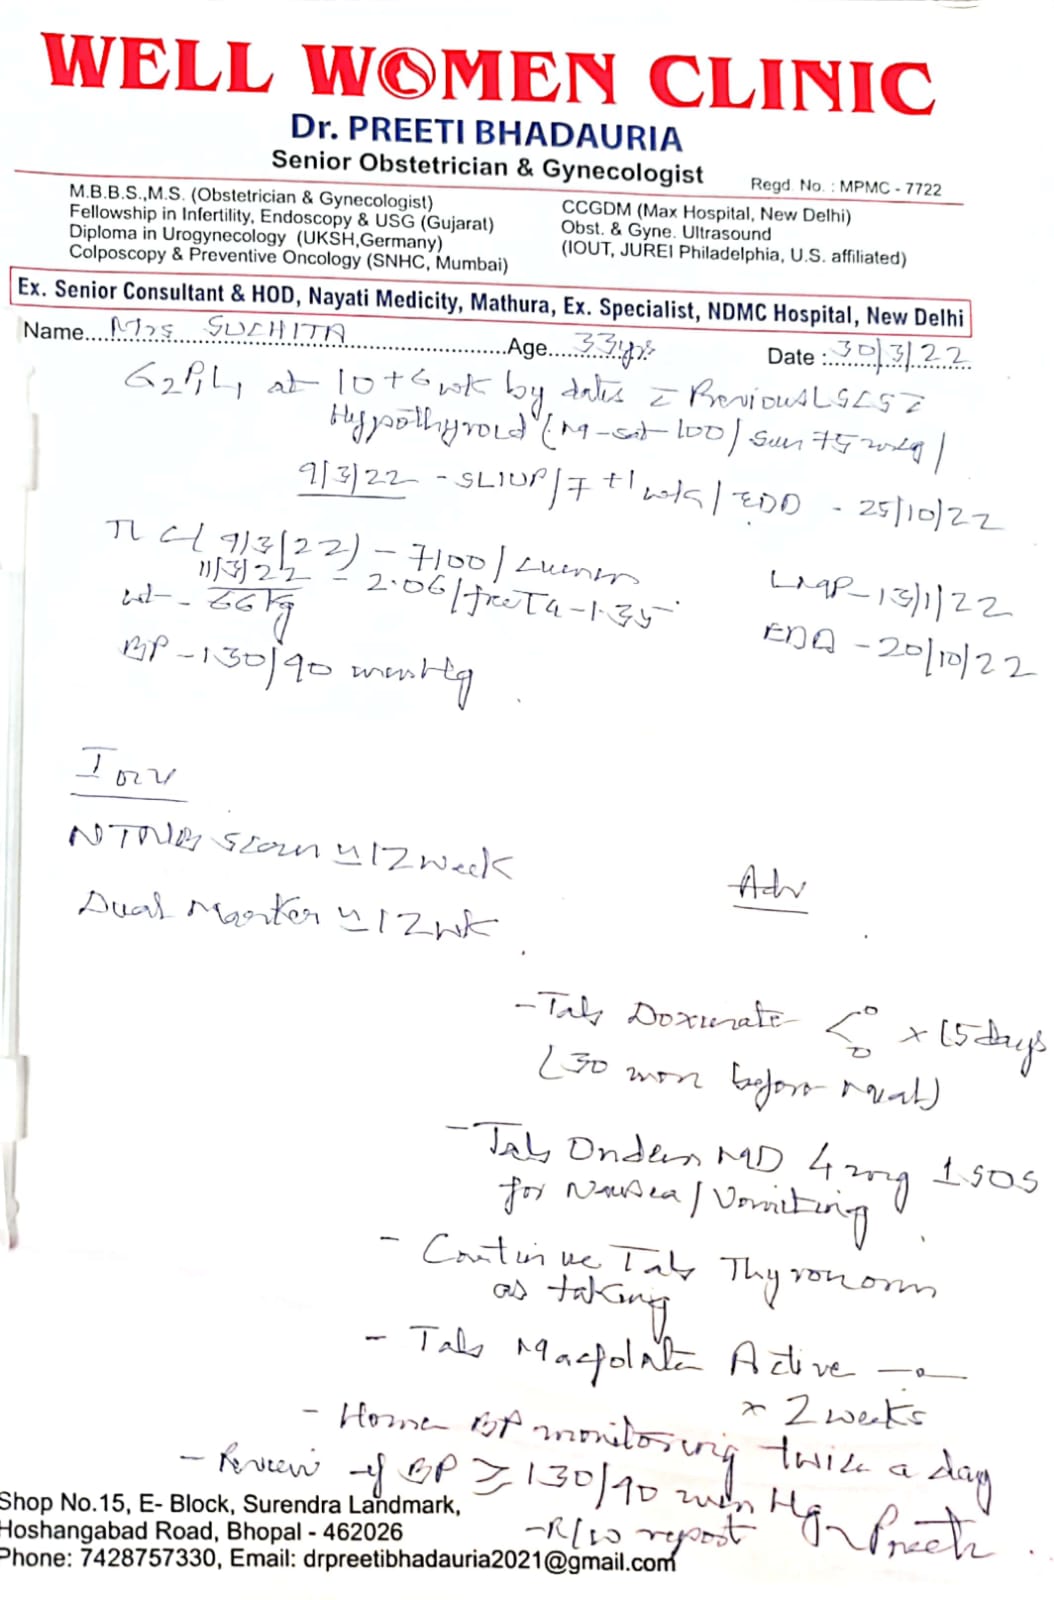 WELL WOMEN CLINIC
Dr. PREETI BHADAURIA
Senior Obstetrician & Gynecologist
Regd. No. : MPMC - 7722
M.B.B.S.,M.S. (Obstetrician & Gynecologist)
Fellowship in Infertility, Endoscopy & USG (Gujarat)
Diploma in Urogynecology (UKSH,Germany)
Colposcopy & Preventive Oncology (SNHC, Mumbai)
CCGDM (Max Hospital, New Delhi)
Obst. & Gyne. Ultrasound
(IOUT, JUREI Philadelphia, U.S. affiliated)
Ex. Senior Consultant & HOD, Nayati Medicity, Mathura, Ex. Specialist, NDMC Hospital, New Delhi
Name....Mrs SUCHITA....Age....33yrs Date :..30/3/22
G2P1L1 at 10+6 wk by dates c Previous LSCS c
Hypothyroid (M-sat-100/Sun 75 mcg)
9/3/22 - SLIUP/7+1 wk/EDD - 25/10/22
TLC (9/3/22) - 7100/cumm
11/3/22 - 2.06/freeT4-1.35
LMP-13/1/22
wt - 66 kg
EDD - 20/10/22
BP - 130/90 mmHg
Inv
NTNB Scan at 12 week
Dual Marker at 12 wk
Adv
- Tab Doxinate <0 0 x 15 days
(30 min before meal)
- Tab Ondem MD 4 mg 1 SOS
for Nausea/Vomiting
- Continue Tab Thyronorm
as taking
- Tab Macfolate Active —o—
x 2 weeks
- Home BP monitoring twice a day
- Review if BP ≥ 130/90 mm Hg
- R/W report
Preeti
Shop No.15, E- Block, Surendra Landmark,
Hoshangabad Road, Bhopal - 462026
Phone: 7428757330, Email: drpreetibhadauria2021@gmail.com